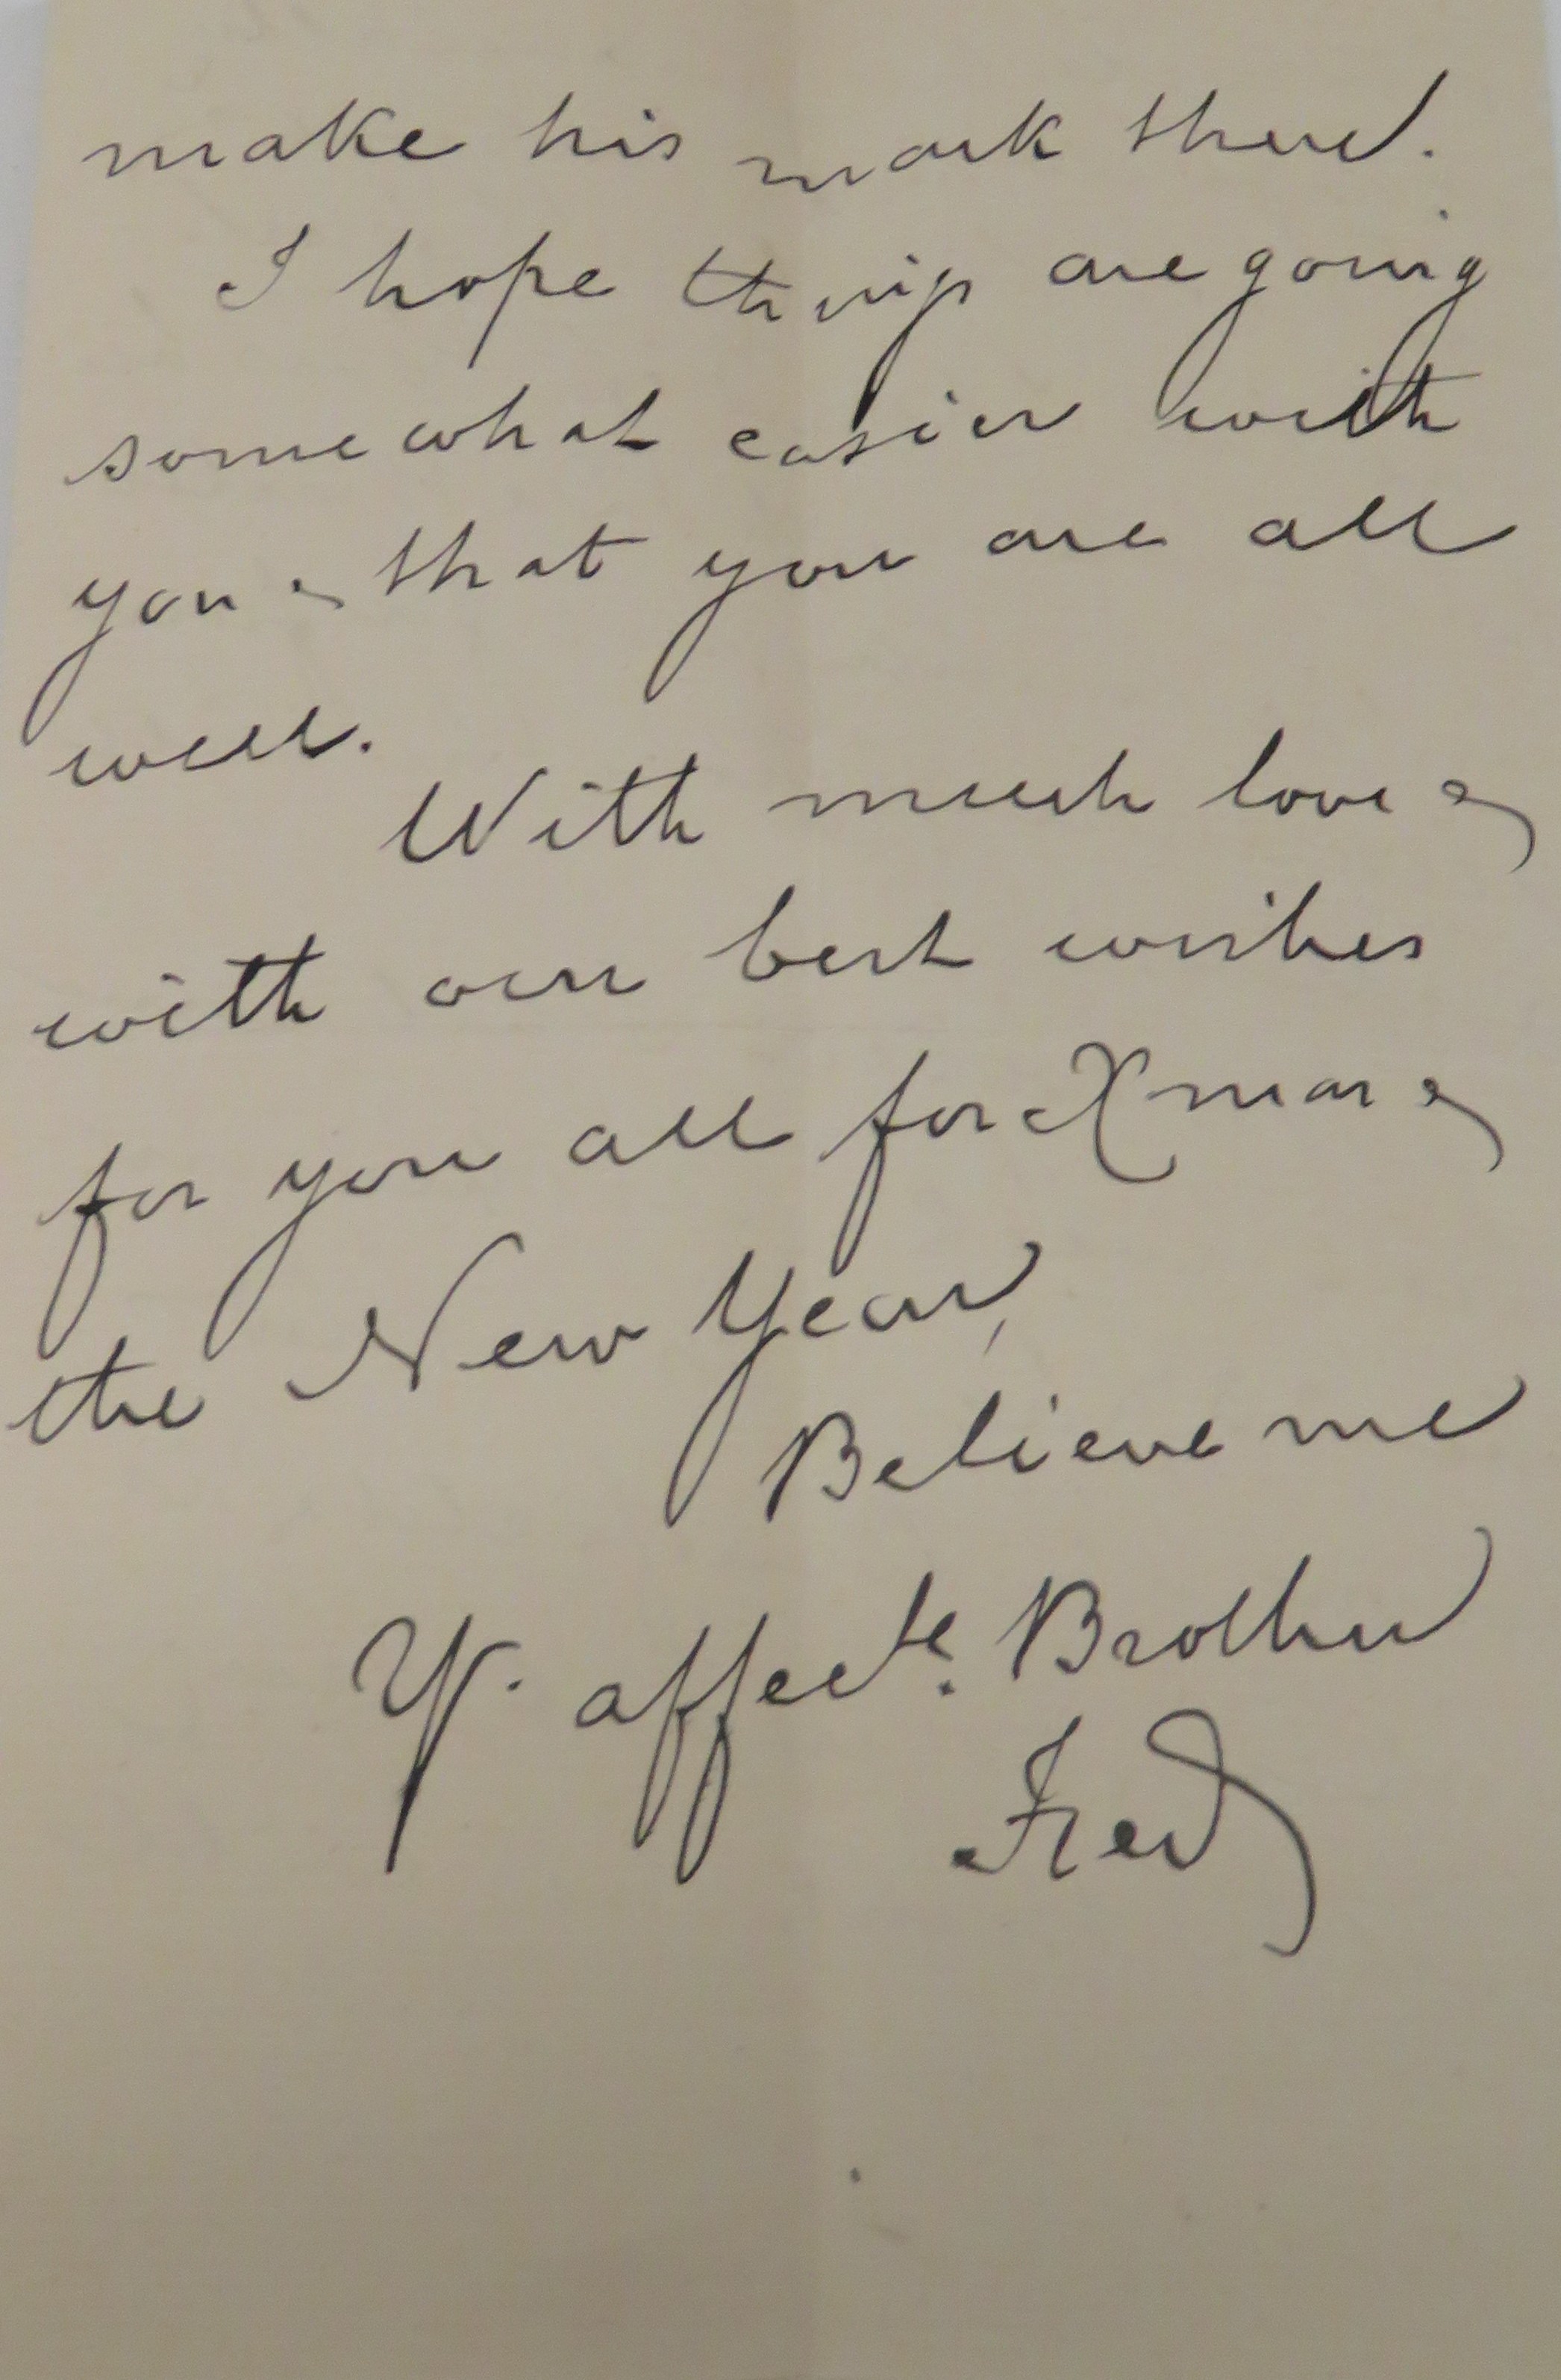 make his mark there.
I hope things are going
somewhat easier with
you & that you are all
well.
With much love &
with our best wishes
for you all for Xmas &
the New Year,
Believe me
Yr. affecte. Brother
Fred